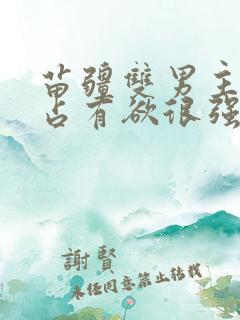 苗疆雙男主
占有欲很强
謝賢
未任同意禁止转载